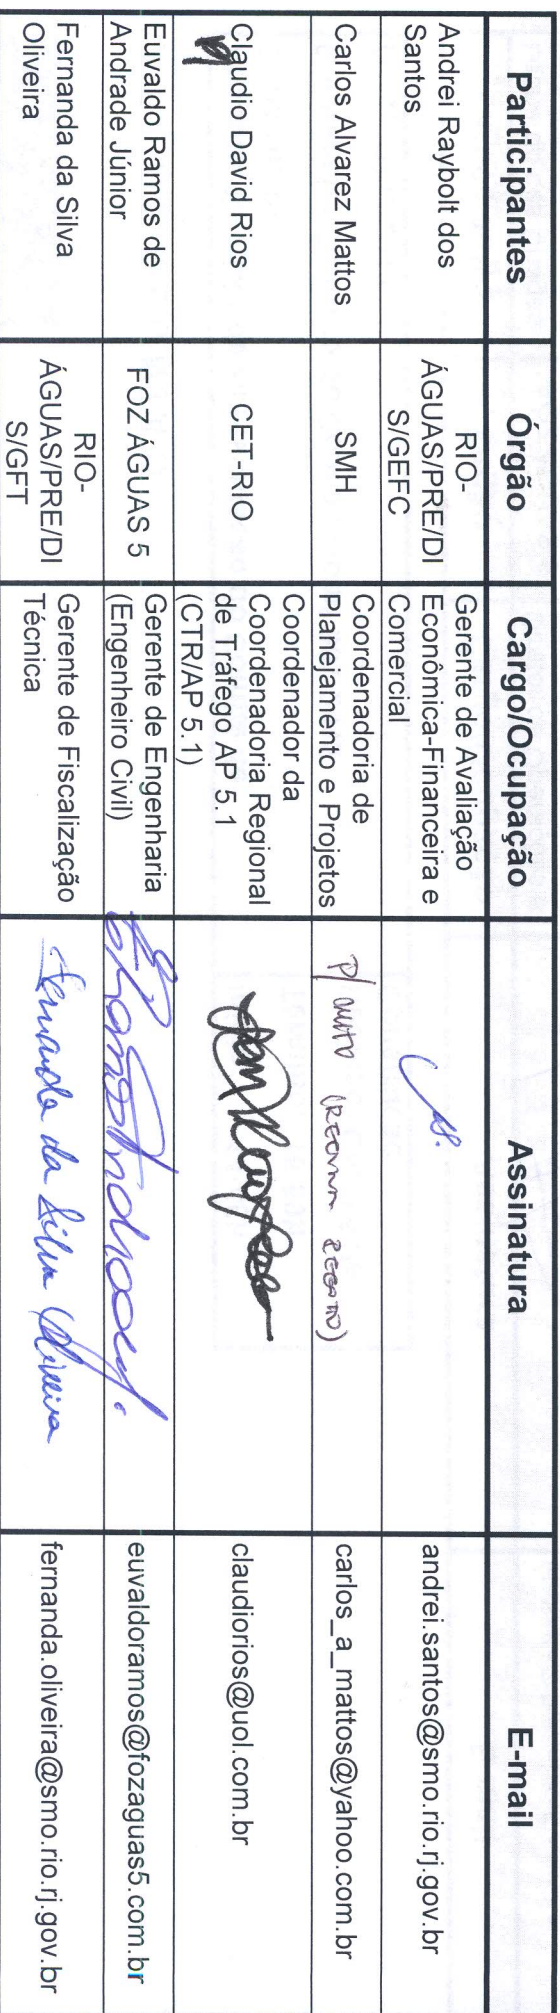 Participantes Órgão Cargo/Ocupação Assinatura E-mail
Andrei Raybolt dos
Santos
RIO-
ÁGUAS/PRE/DI
S/GEFC
Gerente de Avaliação
Econômica-Financeira e
Comercial
andrei.santos@smo.rio.rj.gov.br
Carlos Alvarez Mattos
SMH
Coordenadoria de
Planejamento e Projetos
P/
carlos_a_mattos@yahoo.com.br
Claudio David Rios
p/
CET-RIO
Coordenador da
Coordenadoria Regional
de Tráfego AP 5.1
(CTR/AP 5.1)
claudiorios@uol.com.br
Euvaldo Ramos de
Andrade Júnior
FOZ ÁGUAS 5
Gerente de Engenharia
(Engenheiro Civil)
euvaldoramos@fozaguas5.com.br
Fernanda da Silva
Oliveira
RIO-
ÁGUAS/PRE/DI
S/GFT
Gerente de Fiscalização
Técnica
Fernanda da Silva Oliveira
fernanda.oliveira@smo.rio.rj.gov.br